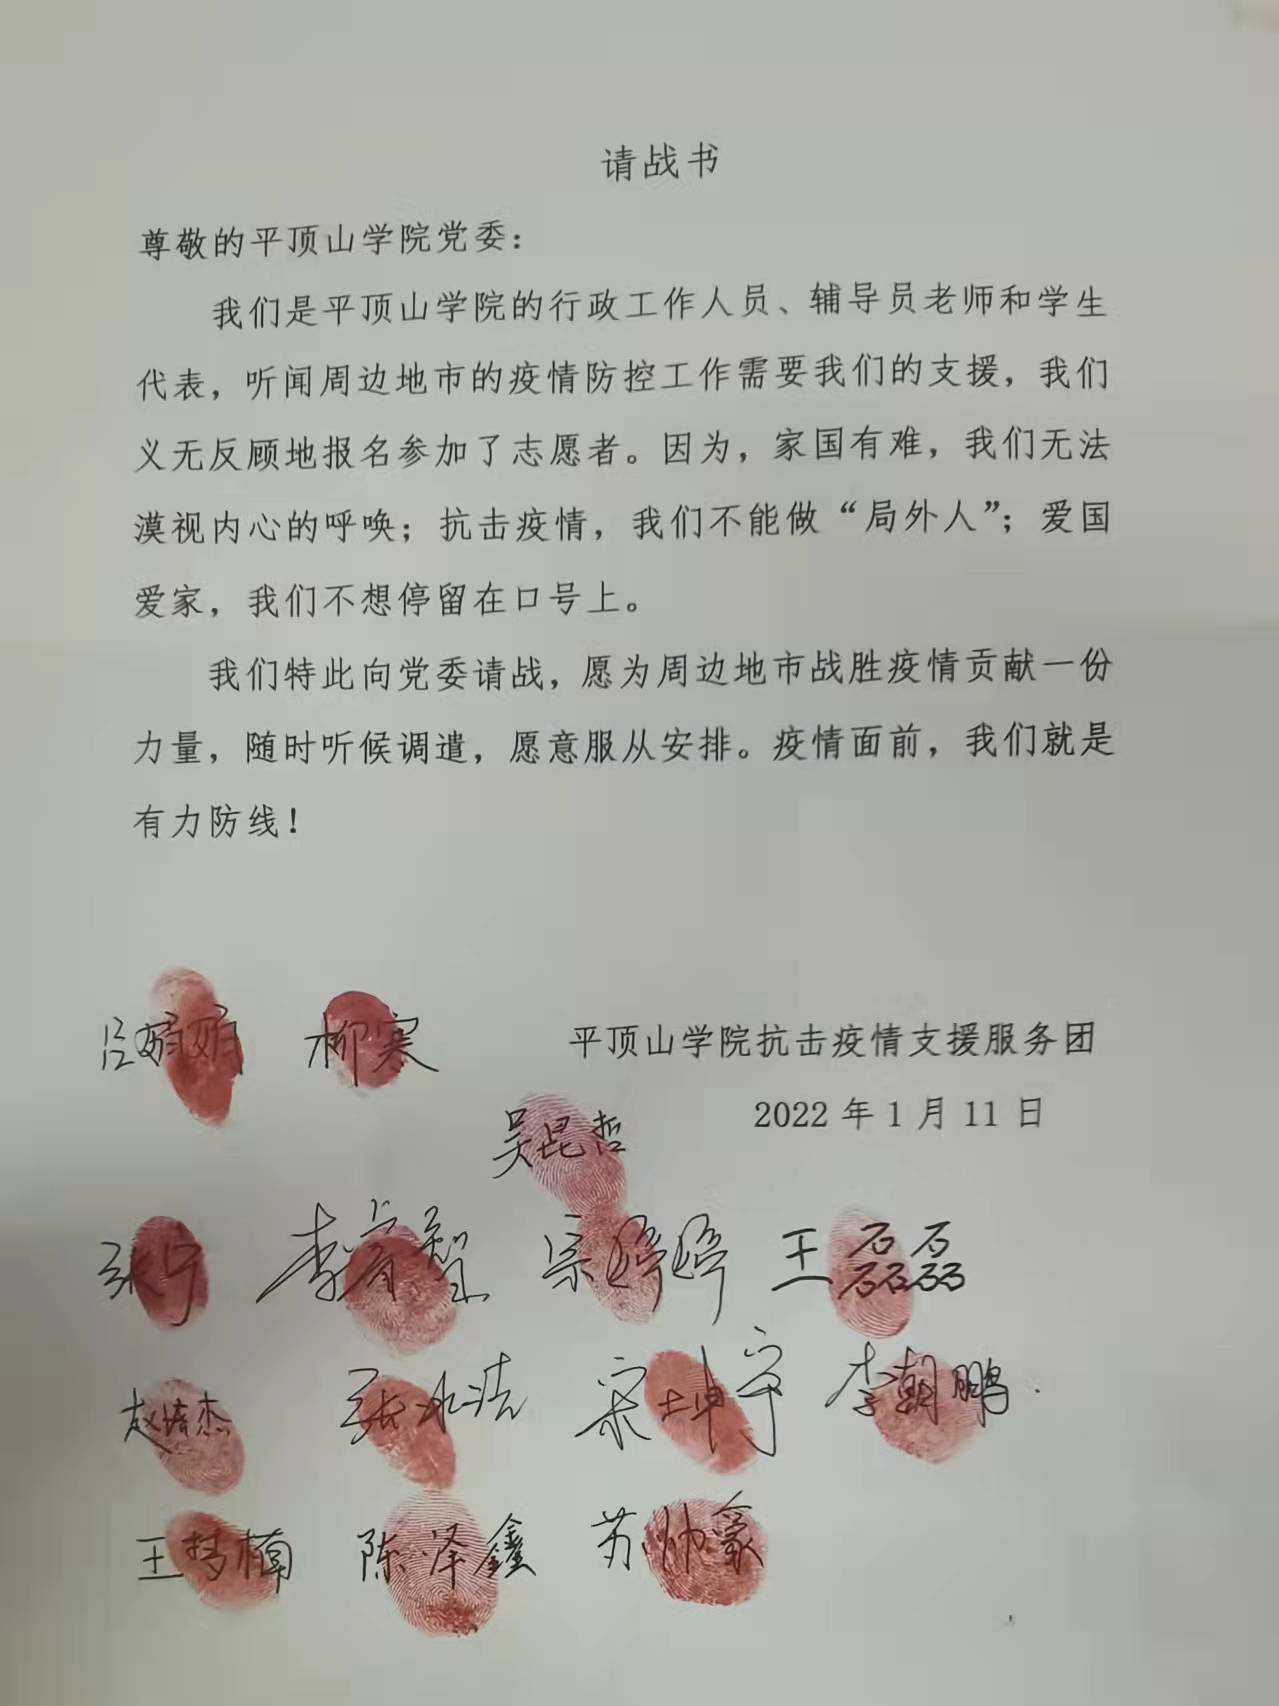 请战书
尊敬的平顶山学院党委：
我们是平顶山学院的行政工作人员、辅导员老师和学生
代表，听闻周边地市的疫情防控工作需要我们的支援，我们
义无反顾地报名参加了志愿者。因为，家国有难，我们无法
漠视内心的呼唤；抗击疫情，我们不能做“局外人”；爱国
爱家，我们不想停留在口号上。
我们特此向党委请战，愿为周边地市战胜疫情贡献一份
力量，随时听候调遣，愿意服从安排。疫情面前，我们就是
有力防线！
柳寒 平顶山学院抗击疫情支援服务团
2022 年 1 月 11 日
吴昆哲
张宁 宗婷婷 王磊磊
宋坤宇 李朝鹏
王梦楠 陈泽鑫